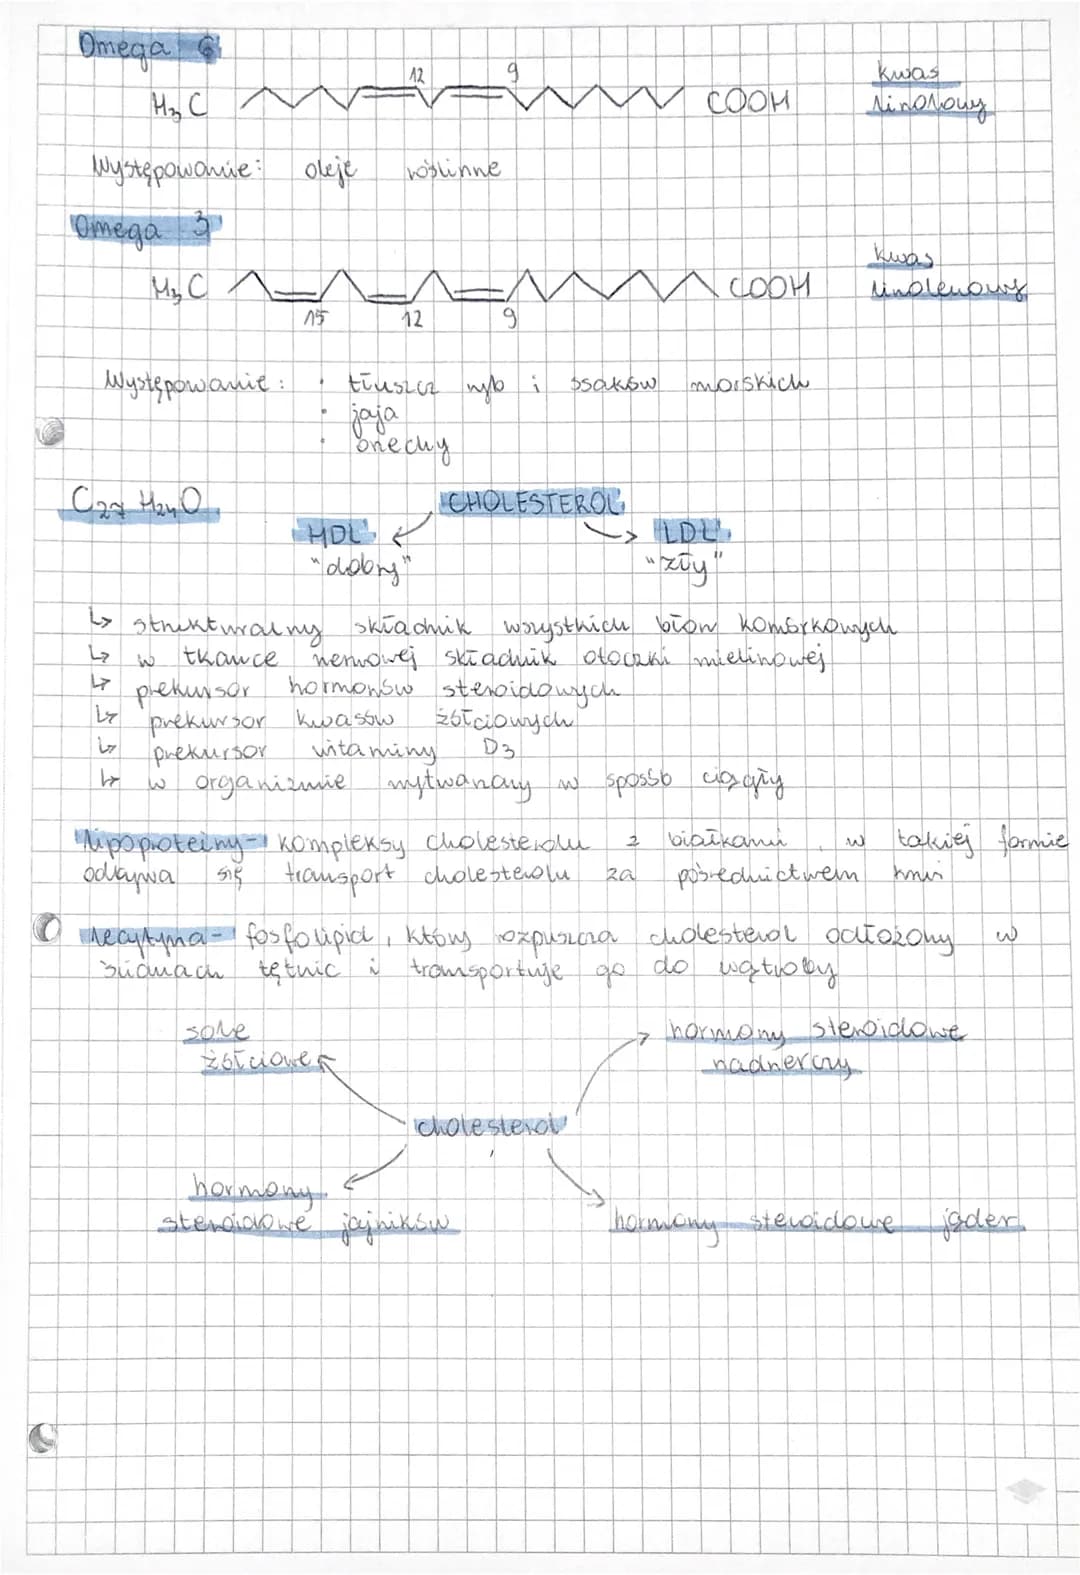 Omega 6
12 9
H₃C COOH
kwas
linolowy
Występowanie: oleje roślinne
Omega 3
H₃C COOH
15 12 9
kwas
linolenowy
Występowanie: • tłuszcz ryb i ssaków morskich
• jaja
• orzechy
C₂₇ H₂₄O
CHOLESTEROL
HDL LDL
"dobry" "zły"
↳ strukturalny składnik wszystkich błon komórkowych
↳ w tkance nerwowej składnik otoczki mielinowej
↳ prekursor hormonów steroidowych
↳ prekursor kwasów żółciowych
↳ prekursor witaminy D3
↳ w organizmie wytwarzany w sposób ciągły
Lipoproteiny - kompleksy cholesterolu z białkami, w takiej formie
odbywa się transport cholesterolu za pośrednictwem krwi
Lecytyna - fosfolipid, który rozpuszcza cholesterol odłożony w
ścianach tętnic i transportuje go do wątroby
sole
żółciowe
hormony steroidowe
nadnerczy
cholesterol
hormony
steroidowe jajników
hormony steroidowe jąder